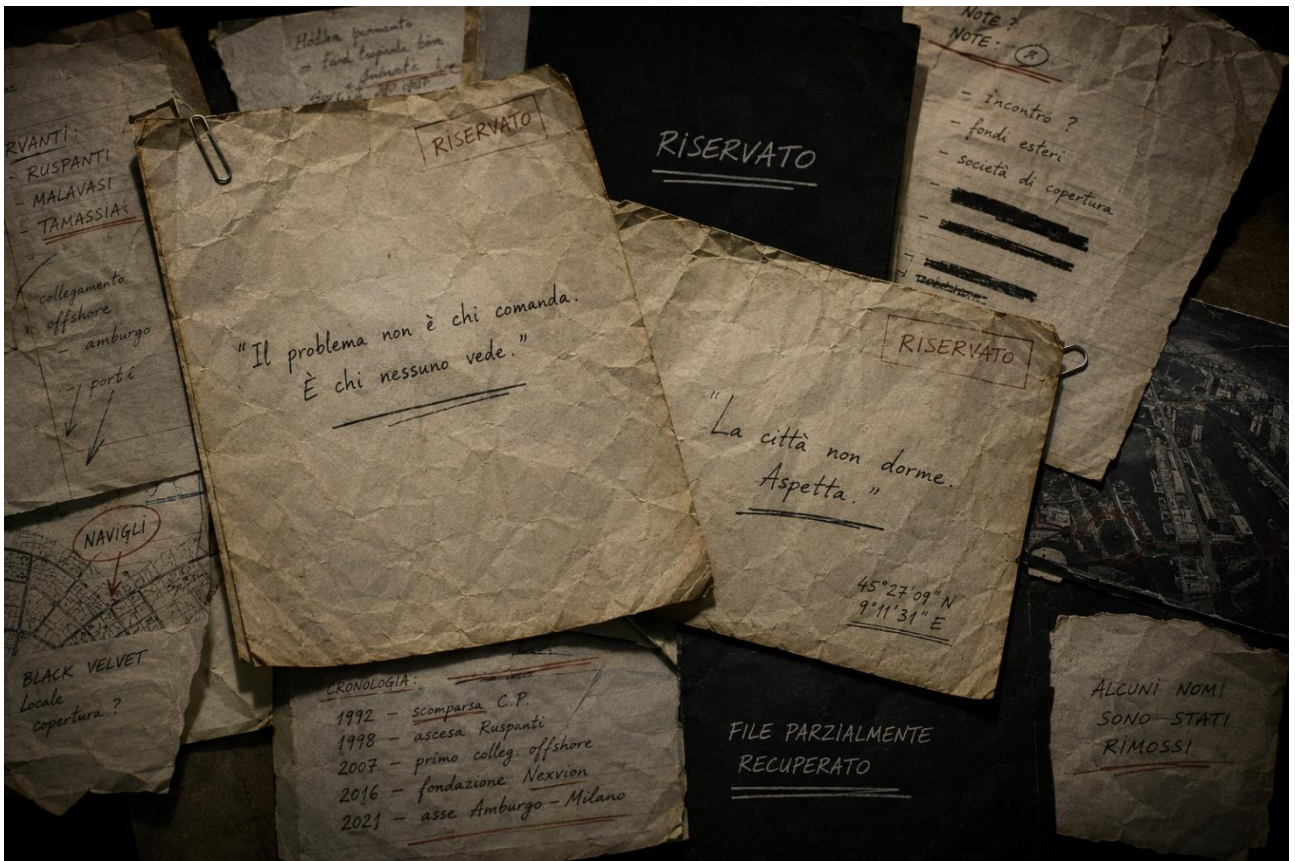 RVANTI:
- RUSPANTI
- MALAVASI
- TAMASSIA:
collegamento
offshore
- amburgo
- porti
NAVIGLI
BLACK VELVET
Locale
copertura ?
RISERVATO
"Il problema non è chi comanda.
È chi nessuno vede."
RISERVATO
NOTE ?
NOTE:
- incontro ?
- fondi esteri
- società di copertura
RISERVATO
"La città non dorme.
Aspetta."
45°27'09"N
9°11'31" E
CRONOLOGIA:
1992 - scomparsa C.P.
1998 - ascesa Ruspanti
2007 - primo colleg. offshore
2016 - fondazione Nexvion
2021 - asse Amburgo - Milano
FILE PARZIALMENTE
RECUPERATO
ALCUNI NOMI
SONO STATI
RIMOSSI